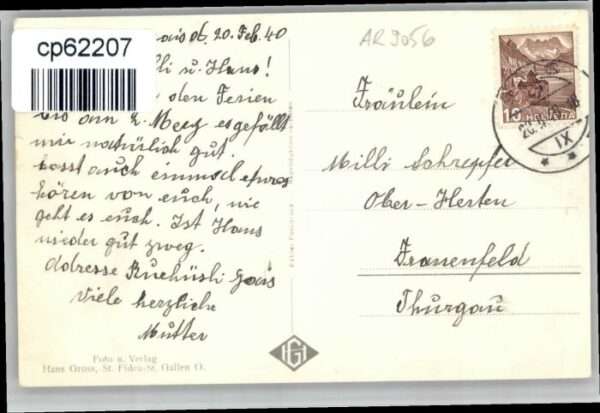 cp62207
Gais d. 20. Feb. 40
li u. Hans!
den Ferien
bis am 2. Meez es gefällt
mir natürlich gut.
Lasst auch einmal etwas
hören von euch, wie
geht es euch. Ist Hans
wieder gut zweg.
Adresse Ruehüsli Gais
Viele herzliche
Mutter
Foto u. Verlag
Hans Gross, St. Fiden-St. Gallen O.
AR 9056
15 HELVETIA
XI
Fräulein
Milli Schrepfer
Ober-Herten
Frauenfeld
Thurgau